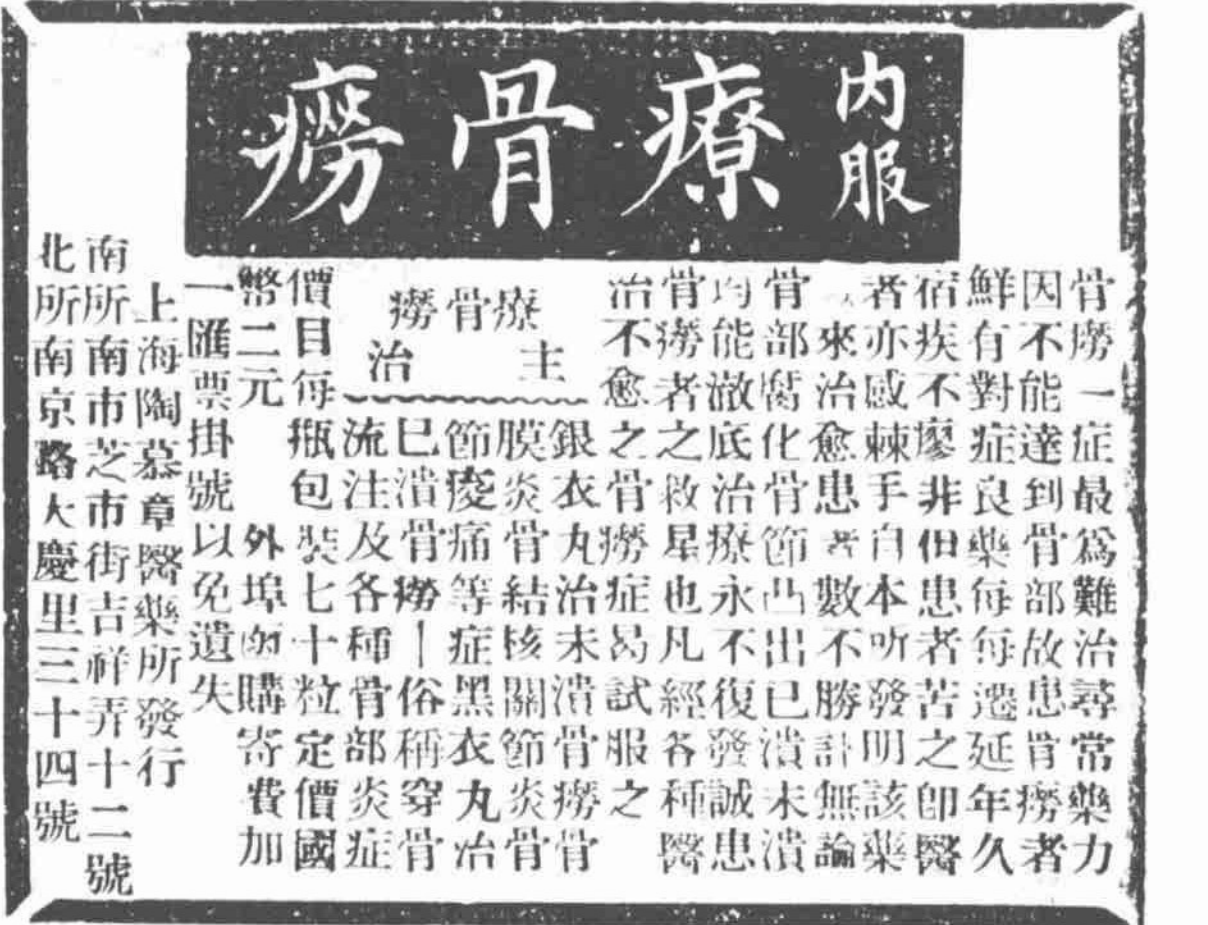 內服
療骨癆
骨癆一症最爲難治尋常藥力
因不能達到骨部故患骨癆者
鮮有對症良藥每每遷延年久
宿疾不廖非但患者苦之卽醫
者亦感棘手自本所發明該藥
來治愈患者數不勝計無論
骨部腐化骨節凸出已潰未潰
均能澈底治療永不復發誠患
骨癆者之救星也凡經各種醫
治不愈之骨癆症曷試服之
療骨癆
主治
銀衣丸治未潰骨癆骨
膜炎骨結核關節炎骨
節痠痛等症黑衣丸治
巳潰骨癆｜俗稱穿骨
流注及各種骨部炎症
價目每瓶包裝七十粒定價國
幣二元 外埠函購寄費加
一匯票掛號以免遺失
上海陶慕章醫藥所發行
南所南市芝市街吉祥弄十二號
北所南京路大慶里三十四號